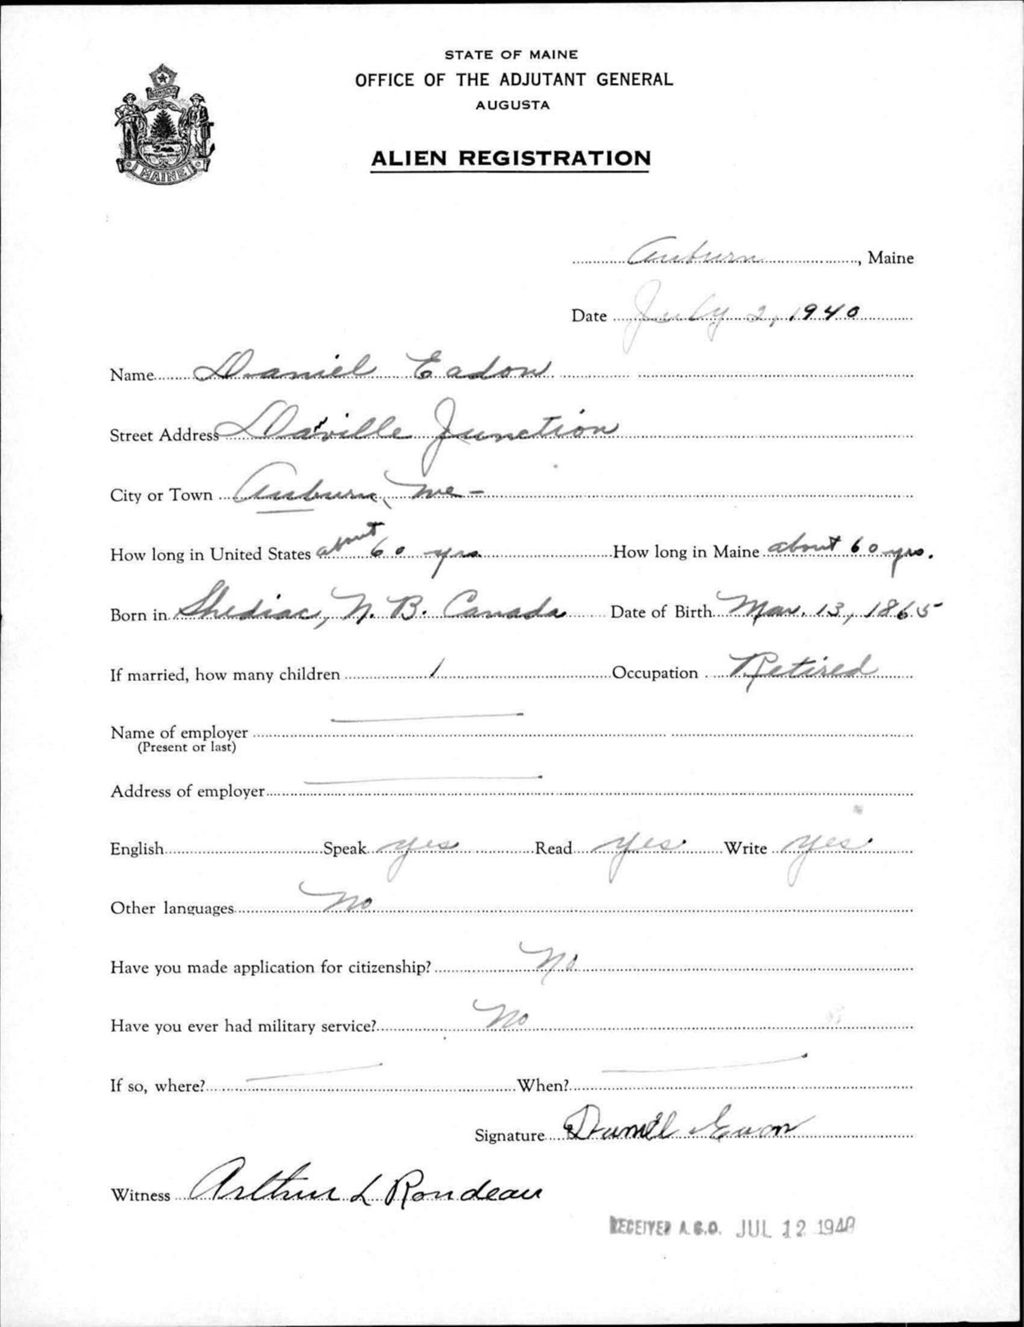 STATE OF MAINE
OFFICE OF THE ADJUTANT GENERAL
AUGUSTA
ALIEN REGISTRATION
MAINE
Auburn, Maine
Date July 2, 1940
Name Daniel Eadon
Street Address Danville Junction
City or Town Auburn, Me-
How long in United States about 60 yrs How long in Maine about 60 yrs.
Born in Shediac, N.B. Canada Date of Birth Mar. 13, 1865
If married, how many children 1 Occupation Retired
Name of employer
(Present or last)
Address of employer
English Speak yes Read yes Write yes
Other languages No
Have you made application for citizenship? No
Have you ever had military service? No
If so, where? When?
Signature Daniel
Witness Arthur L Rondeau
RECEIVED A.G.O. JUL 12 1940